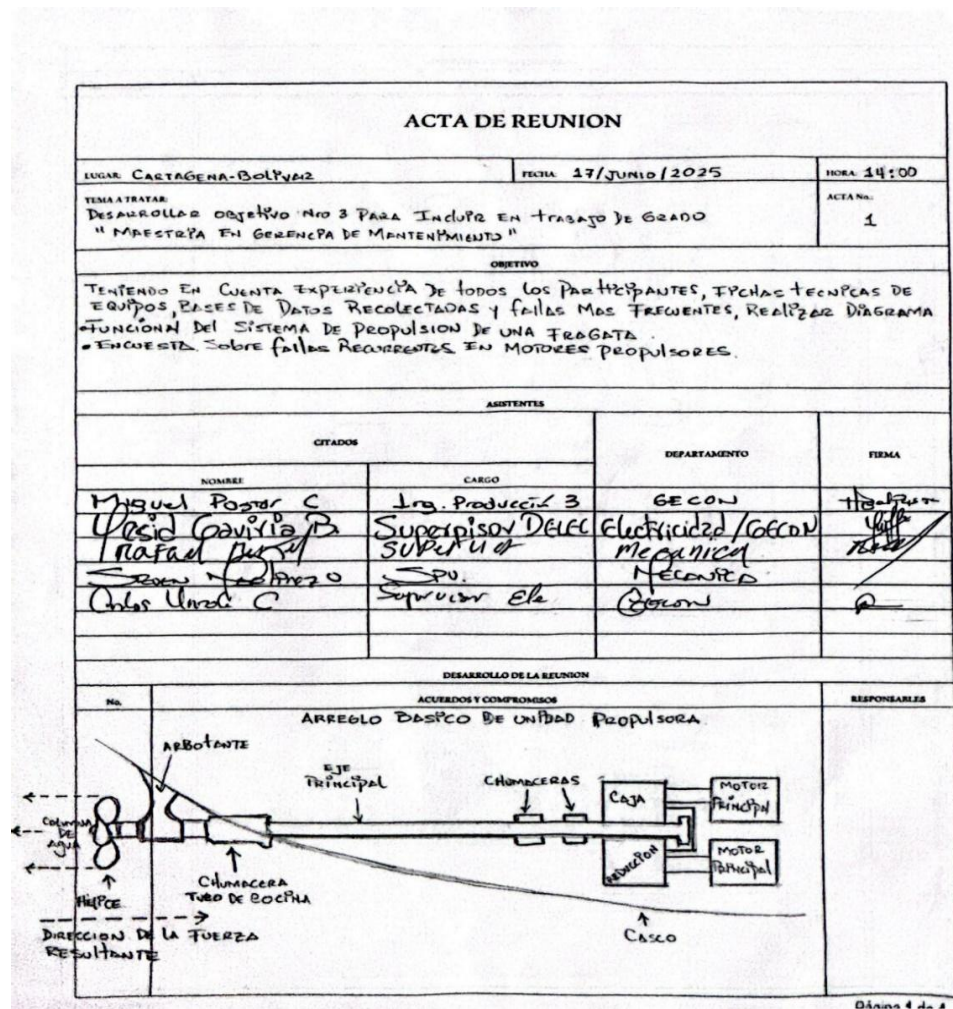 ACTA DE REUNION
LUGAR: CARTAGENA-BOLIVAR
FECHA: 17/JUNIO/2025
HORA: 14:00
TEMA A TRATAR:
DESARROLLAR OBJETIVO Nro 3 PARA INCLUIR EN TRABAJO DE GRADO
" MAESTRIA EN GERENCIA DE MANTENIMIENTO"
ACTA No.:
1
OBJETIVO
TENIENDO EN CUENTA EXPERIENCIA DE TODOS LOS PARTICIPANTES, FICHAS TECNICAS DE
EQUIPOS, BASES DE DATOS RECOLECTADAS Y FALLAS MAS FRECUENTES, REALIZAR DIAGRAMA
•FUNCIONAL DEL SISTEMA DE PROPULSION DE UNA FRAGATA
• ENCUESTA SOBRE FALLAS RECURRENTES EN MOTORES PROPULSORES.
ASISTENTES
CITADOS
DEPARTAMENTO
FIRMA
NOMBRE
CARGO
Miguel Pastor C Ing. Producción 3 GECON
Yesid Gaviria B Superpisor DELEC Electricidad/GECON
Rafael
MECANICA
Carlos C Supervisor Ele GECON
DESARROLLO DE LA REUNION
No.
ACUERDOS Y COMPROMISOS
RESPONSABLES
ARREGLO BASICO DE UNIDAD PROPULSORA
ARBOTANTE
EJE
PRINCIPAL
CHUMACERAS
CAJA
REDUCCION
MOTOR
PRINCIPAL
MOTOR
PRINCIPAL
COLUMNA
DE
AGUA
HELICE
CHUMACERA
TUBO DE BOCINA
CASCO
DIRECCION DE LA FUERZA
RESULTANTE
Página 1 de 4